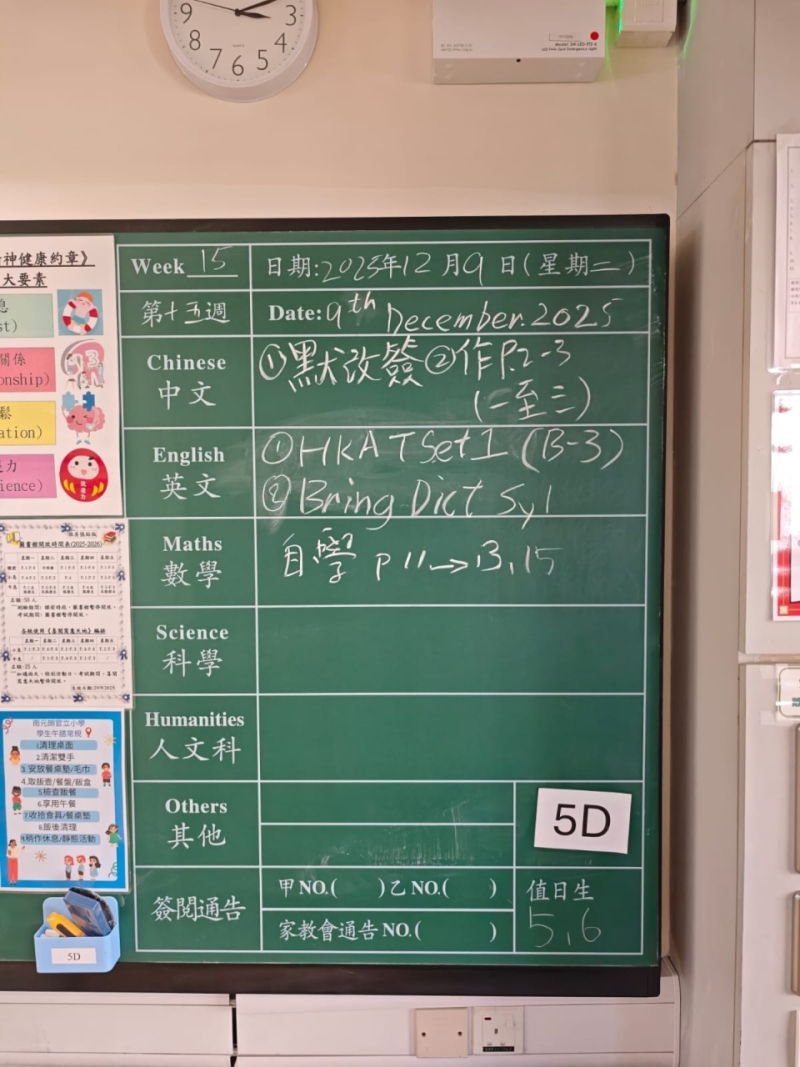 9
3
8
4
7
6
5
神健康約章》
大要素
st)
關係
onship)
鬆
ation)
力
ience)
圖書館開放時間表(2025-2026)
兩元朗官立小學
學生午膳常規
1.清理桌面
2.清潔雙手
3.安放餐桌墊/毛巾
4.取飯壺/餐盤/飯盒
5.檢查飯餐
6.享用午餐
7.收拾食具/餐桌墊
8.飯後清理
9.稍作休息/靜態活動
5D
Week 15
日期:2025年12月9日(星期二)
第十五週
Date: 9th December. 2025
Chinese
中文
①默改簽②作P.2-3
(一至三)
English
英文
①HKAT Set 1 (B-3)
②Bring Dict Syl
Maths
數學
自學 p 11→13, 15
Science
科學
Humanities
人文科
Others
其他
5D
簽閱通告
甲NO.( )乙NO.( )
家教會通告NO.( )
值日生
5, 6